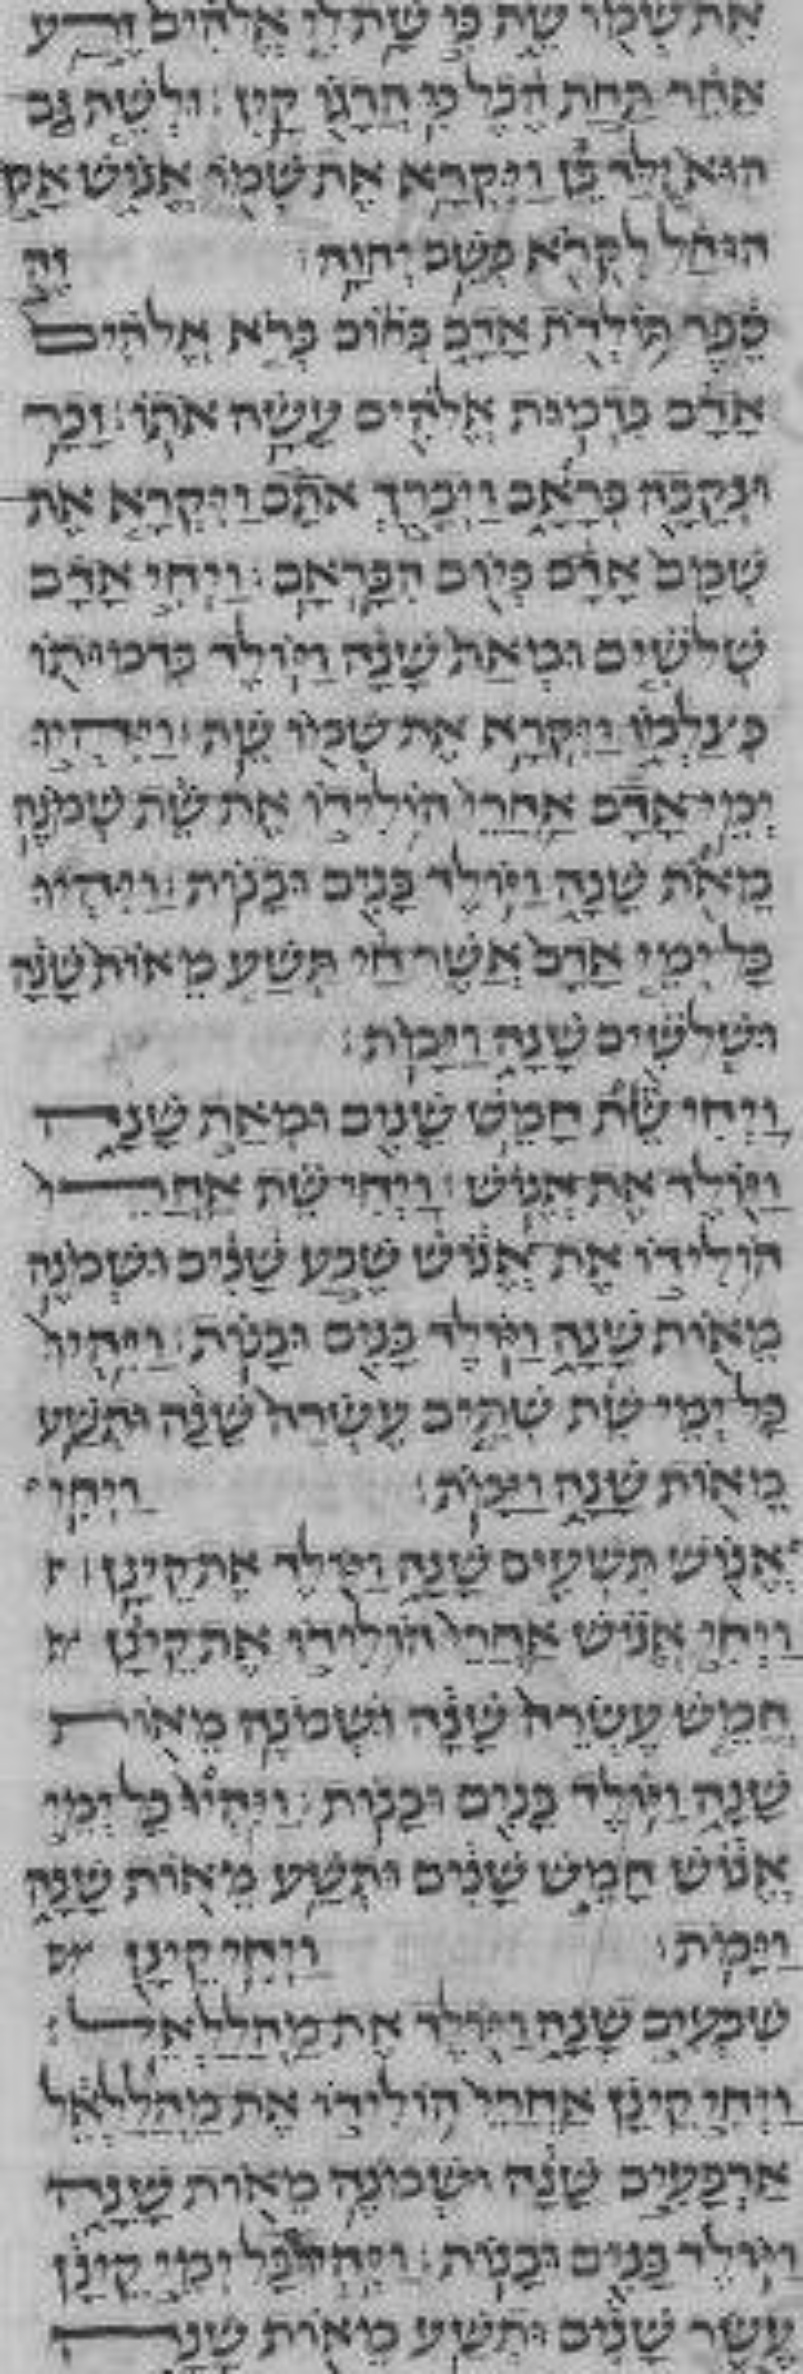 את שמו שת כי שת לי אלהים זרע
אחר תחת הבל כי הרגו קין׃ ולשת גם
הוא ילד בן ויקרא את שמו אנוש אז
הוחל לקרא בשם יהוה׃ זה
ספר תולדת אדם ביום ברא אלהים
אדם בדמות אלהים עשה אתו׃ זכר
ונקבה בראם ויברך אתם ויקרא את
שמם אדם ביום הבראם׃ ויחי אדם
שלשים ומאת שנה ויולד בדמותו
כצלמו ויקרא את שמו שת׃ ויהיו
ימי אדם אחרי הולידו את שת שמנה
מאת שנה ויולד בנים ובנות׃ ויהיו
כל ימי אדם אשר חי תשע מאות שנה
ושלשים שנה וימת׃
ויחי שת חמש שנים ומאת שנה
ויולד את אנוש׃ ויחי שת אחרי
הולידו את אנוש שבע שנים ושמנה
מאות שנה ויולד בנים ובנות׃ ויהיו
כל ימי שת שתים עשרה שנה ותשע
מאות שנה וימת׃ ויחי
אנוש תשעים שנה ויולד את קינן׃
ויחי אנוש אחרי הולידו את קינן
חמש עשרה שנה ושמנה מאות
שנה ויולד בנים ובנות׃ ויהיו כל ימי
אנוש חמש שנים ותשע מאות שנה
וימת׃ ויחי קינן
שבעים שנה ויולד את מהללאל׃
ויחי קינן אחרי הולידו את מהללאל
ארבעים שנה ושמנה מאות שנה
ויולד בנים ובנות׃ ויהיו כל ימי קינן
עשר שנים ותשע מאות שנה